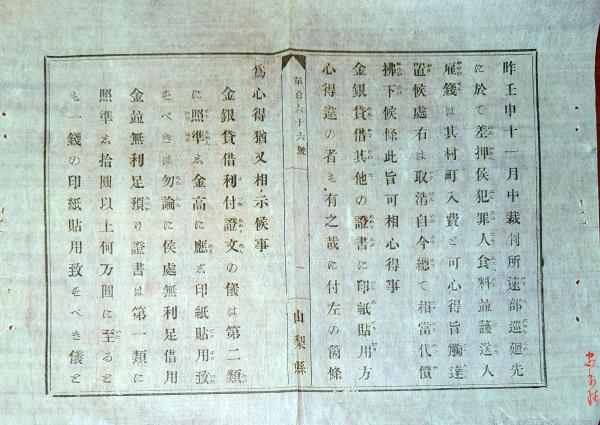 昨壬申十一月中裁判所逮部巡廻先
に於て差押候犯罪人食料並護送人
雇錢は其村町入費と可心得旨觸達
置候處右は取消自今總て相當代償
拂下候條此旨可相心得事
金銀貸借其他の證書に印紙貼用方
心得違の者も有之哉に付左の箇條
第百六十六號
一
山梨縣
爲心得猶又相示候事
金銀貸借利付證文の儀は第二類
に照準し金高に應し印紙貼用致
すべきは勿論に候處無利足借用
金並無利足預り證書は第一類に
照準し拾圓以上何万圓に至ると
も一錢の印紙貼用致すべき儀と